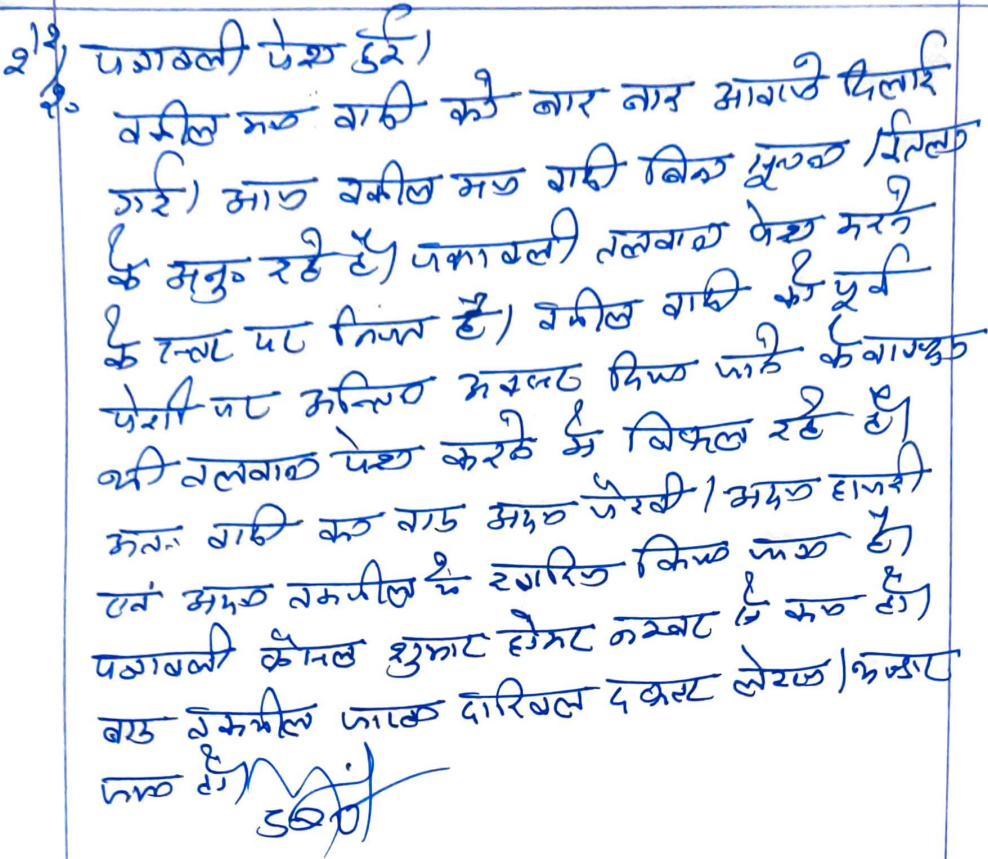 पत्रावली पेश हुई।
वकील मय वादी को बार बार आवाजे दिलाई
गई। आज वकील मय वादी बिना पूर्व इतला
के अनु॰ रहे है। पत्रावली तलवाना पेश करने
के स्तर पर नियत है। वकील वादी को पूर्व
पेशी पर अन्तिम अवसर दिया जाने के बावजूद
भी तलवाना पेश करने में विफल रहे है।
अतः वादी का वाद अदम पैरवी / अदम हाजरी
एवं अदम तकमील में खारिज किया जाता है।
पत्रावली फैसल शुमार होकर नम्बर से कम हो।
बाद तकमील जाप्ता दाखिल दफ्तर लेख
जावे हो।